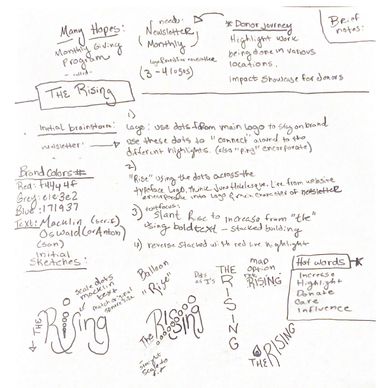 Many Hopes:
Monthly Giving
Program
called
The Rising
needs:
Newsletter
(Monthly)
(3-4 logos)
* Donor journey
Highlight work
being done in various
locations.
impact showcase for donors
Brief
notes:
Initial brainstorm:
newsletter
1)
Logo: use dots from main logo to stay on brand
use these dots to "connect" around to the
different highlights. (also "png" encorporate)
2)
"Rise" using the dots across the
typeface logo, think
from website
encorporate into logo
of newsletter
3) textfocus:
Slant Rise to Increase from "the"
using bold text - stacked building
4) reverse stacked with red line highlight
Brand colors #
Red:
Grey: e1e3e2
Blue: 171937
Text: Macklin (serif)
Oswald (or Anton)
(san)
Initial
Sketches:
scale dots
macklin
text
THE
Rising
Balloon
"Rise"
The Rising
Dots
as I's
THE
RISING
map
option
THE
RISING
THE RISING
Hot words
Increase
Highlight
Donate
Care
Influence